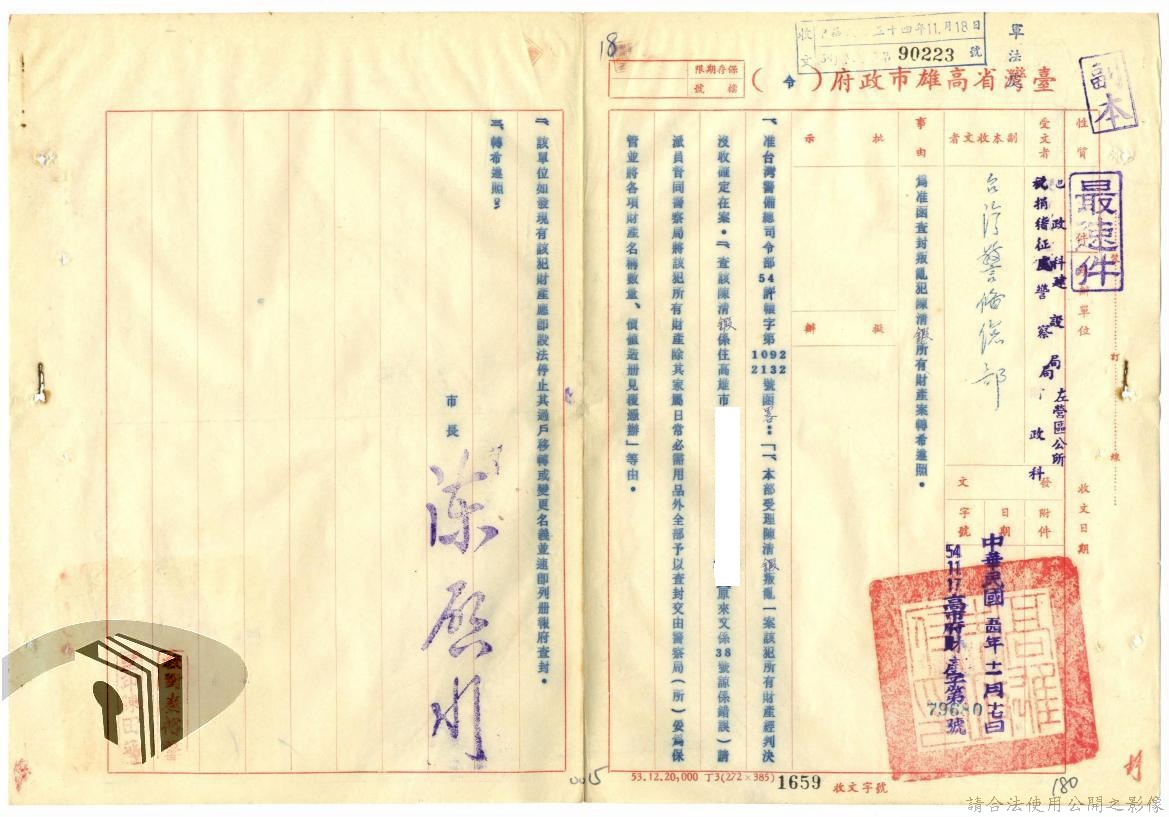 副本
最速件
軍法處
90223
18
臺灣省高雄市政府（令）
保存期限
檔號
性質
受文者
地政科建設局左營區公所
稅捐稽征處警察局財政科
副本收文者
台灣警備總部
收文日期
發文
附件
日期
字號
中華民國五四年十一月十七日
54.11.17高市府財產字第79680號
批示
擬辦
事由
為准函查封叛亂犯陳清鍜所有財產案轉希遵照。
一、准台灣警備總司令部54許轅字第1092 2132號函畧：「一、本部受理陳清鍜叛亂一案該犯所有財產經判決
沒收確定在案。二、查該陳清鍜係住高雄市
原來文係38號諒係錯誤）請
派員會同警察局將該犯所有財產除其家屬日常必需用品外全部予以查封交由警察局（所）妥為保
管並將各項財產名稱數量、價值造册見復憑辦」等由。
二、該單位如發現有該犯財產應即設法停止其過戶移轉或變更名義並速即列册報府查封。
三、轉希遵照。
市長
陳啟川
訂
線
53.12.20,000 丁3(272×385)
1659
收文字號
180
0015
請合法使用公開之影像